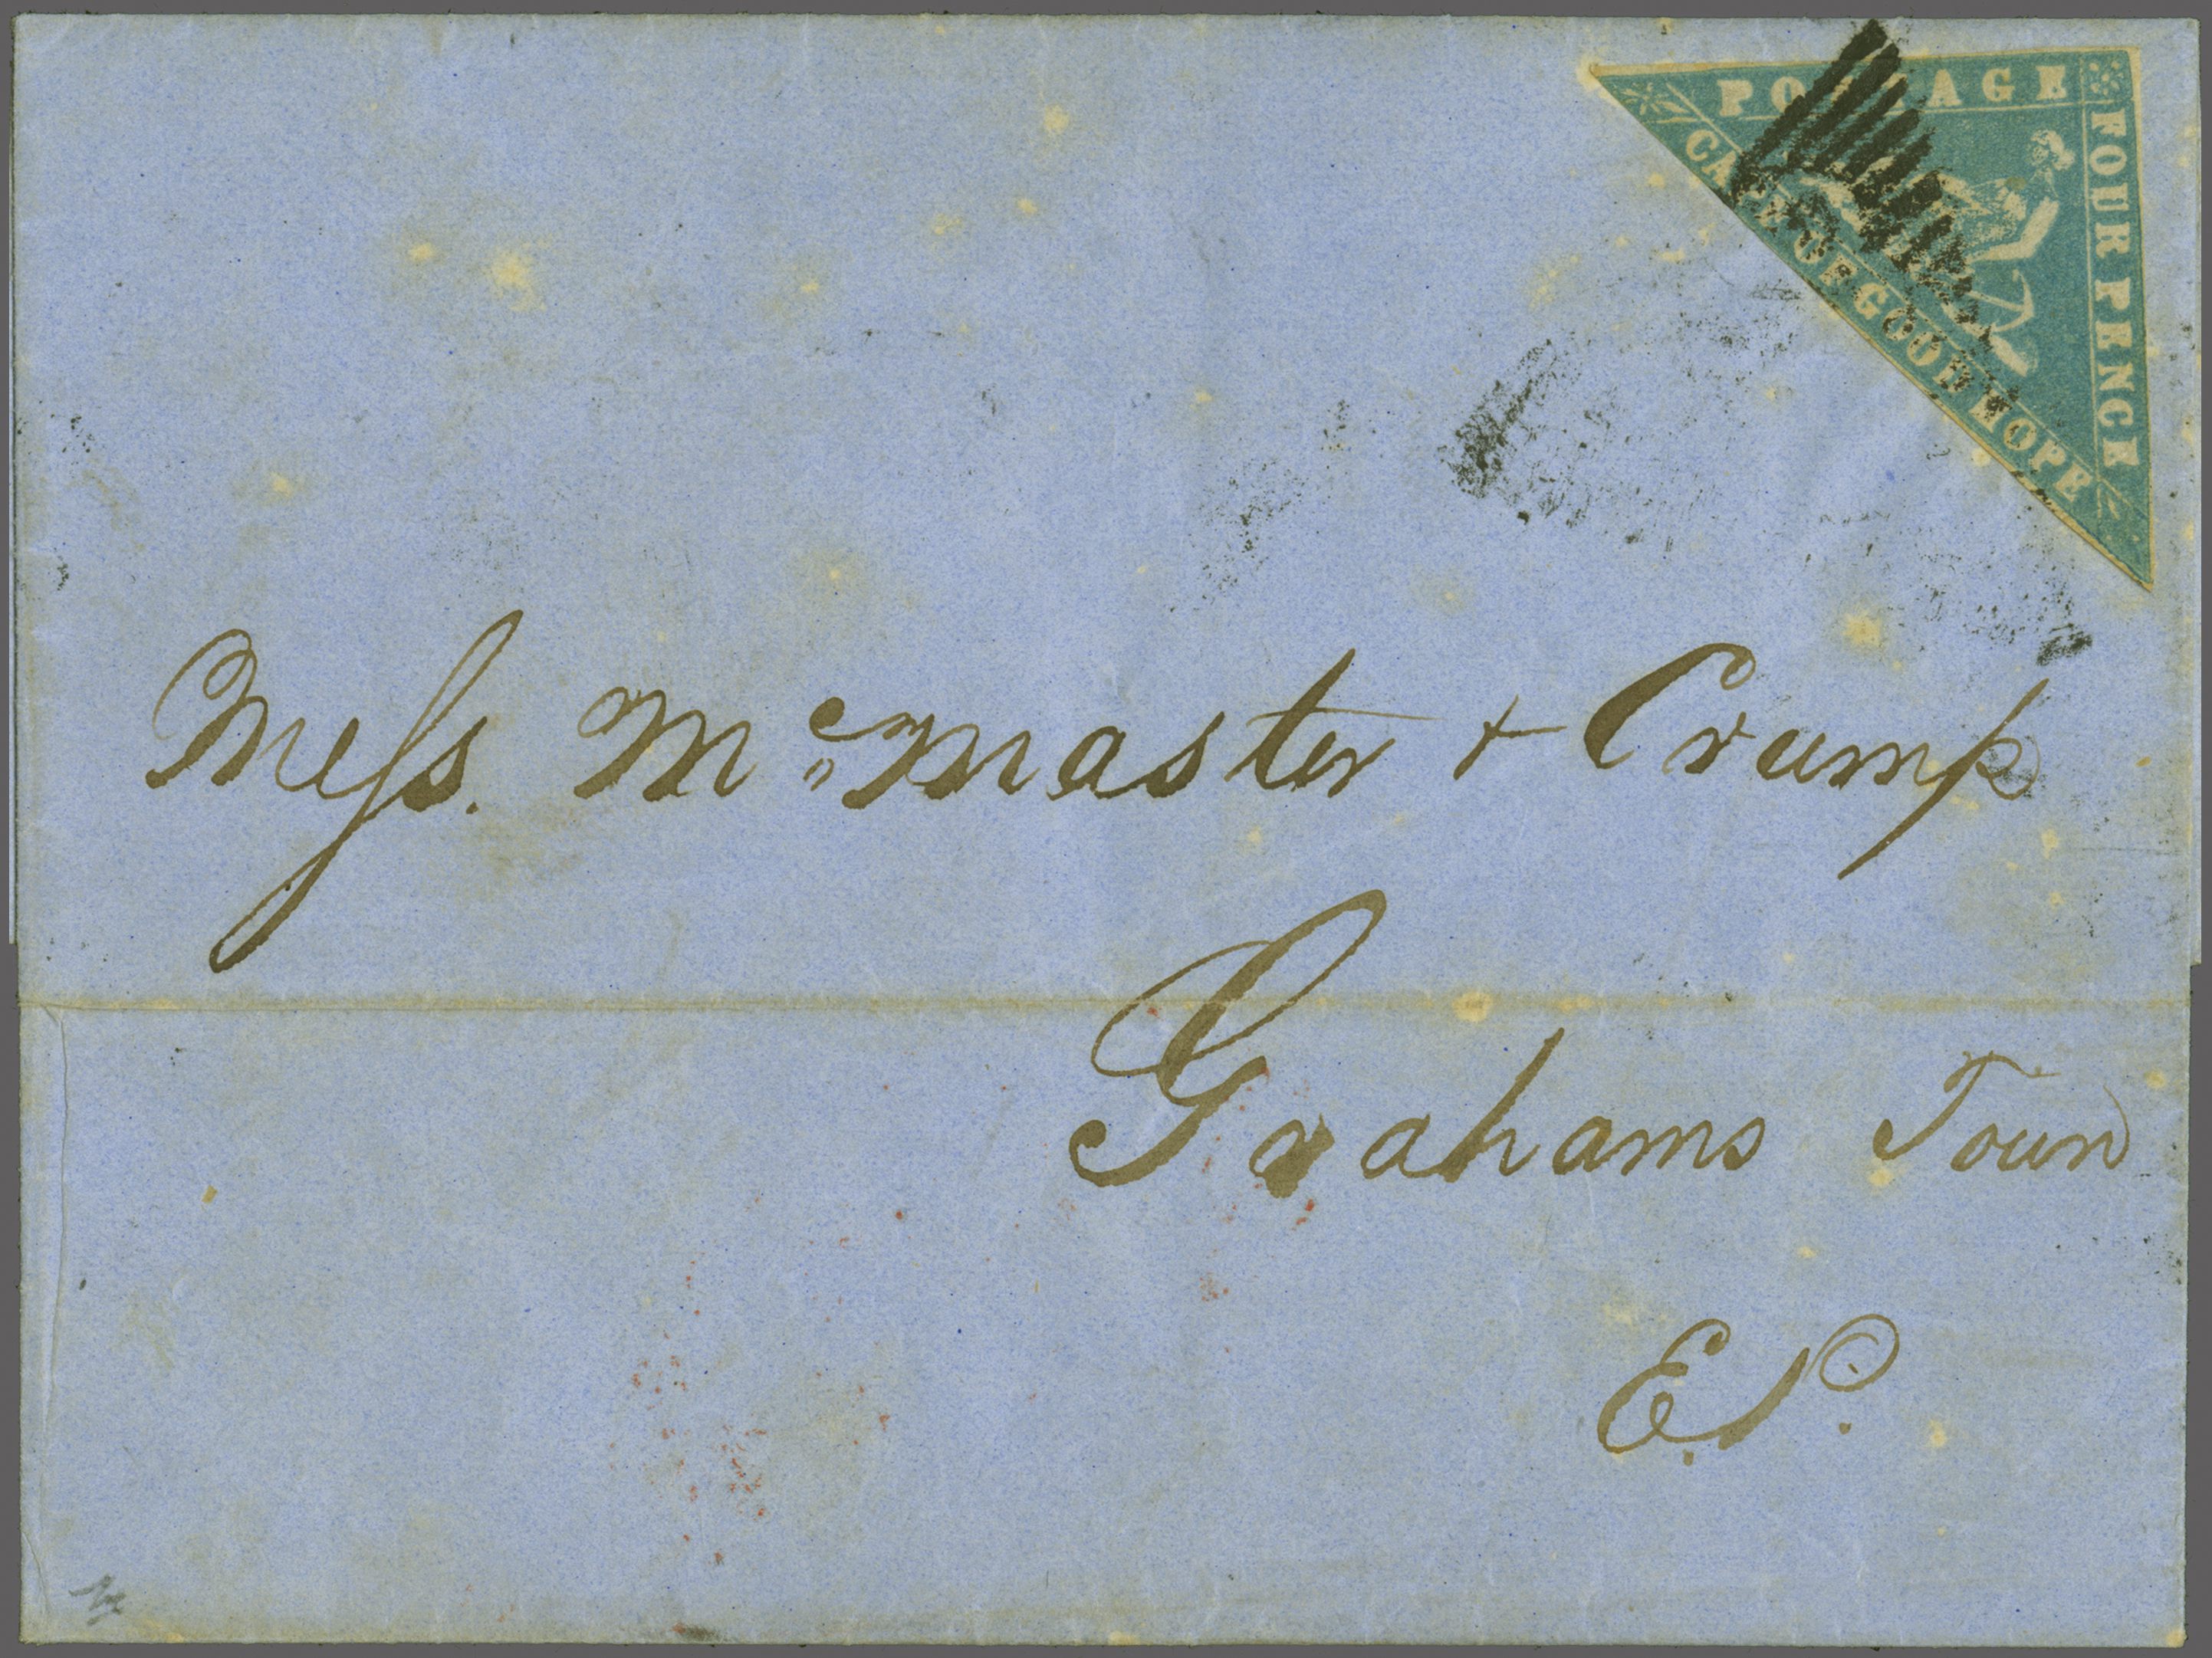 POSTAGE
FOUR PENCE
CAPE OF GOOD HOPE
Mess. Mc Master + Crump
Grahams Town
E.P.